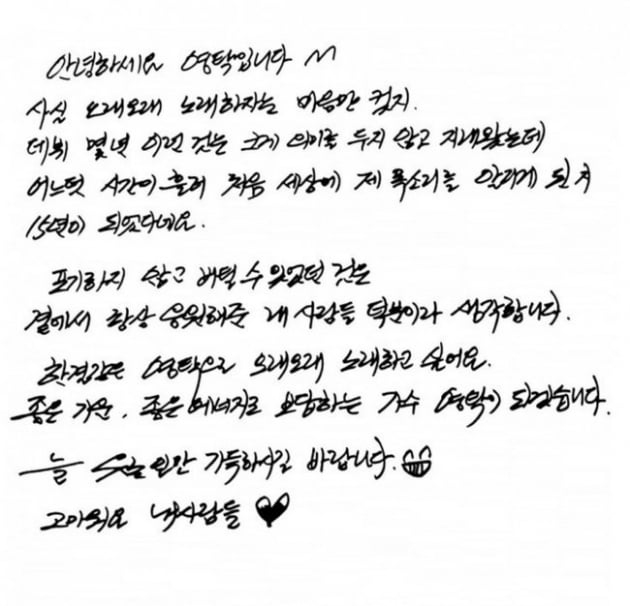 안녕하세요 영탁입니다 ^^
사실 오래오래 노래하자는 마음만 컸지.
데뷔 몇년 이런 것는 크게 의미를 두지 않고 지내왔는데
어느덧 시간이 흘러 처음 세상에 제 목소리를 알리게 된 지
15년이 되었다네요.
포기하지 않고 버틸 수 있었던 것은
곁에서 항상 응원해준 내 사람들 덕분이라 생각합니다.
한결같은 영탁으로 오래오래 노래하고 싶어요.
좋은 기운, 좋은 에너지로 보답하는 가수 영탁이 되겠습니다.
늘 웃을 일만 가득하시길 바랍니다.
고마워요 내사람들